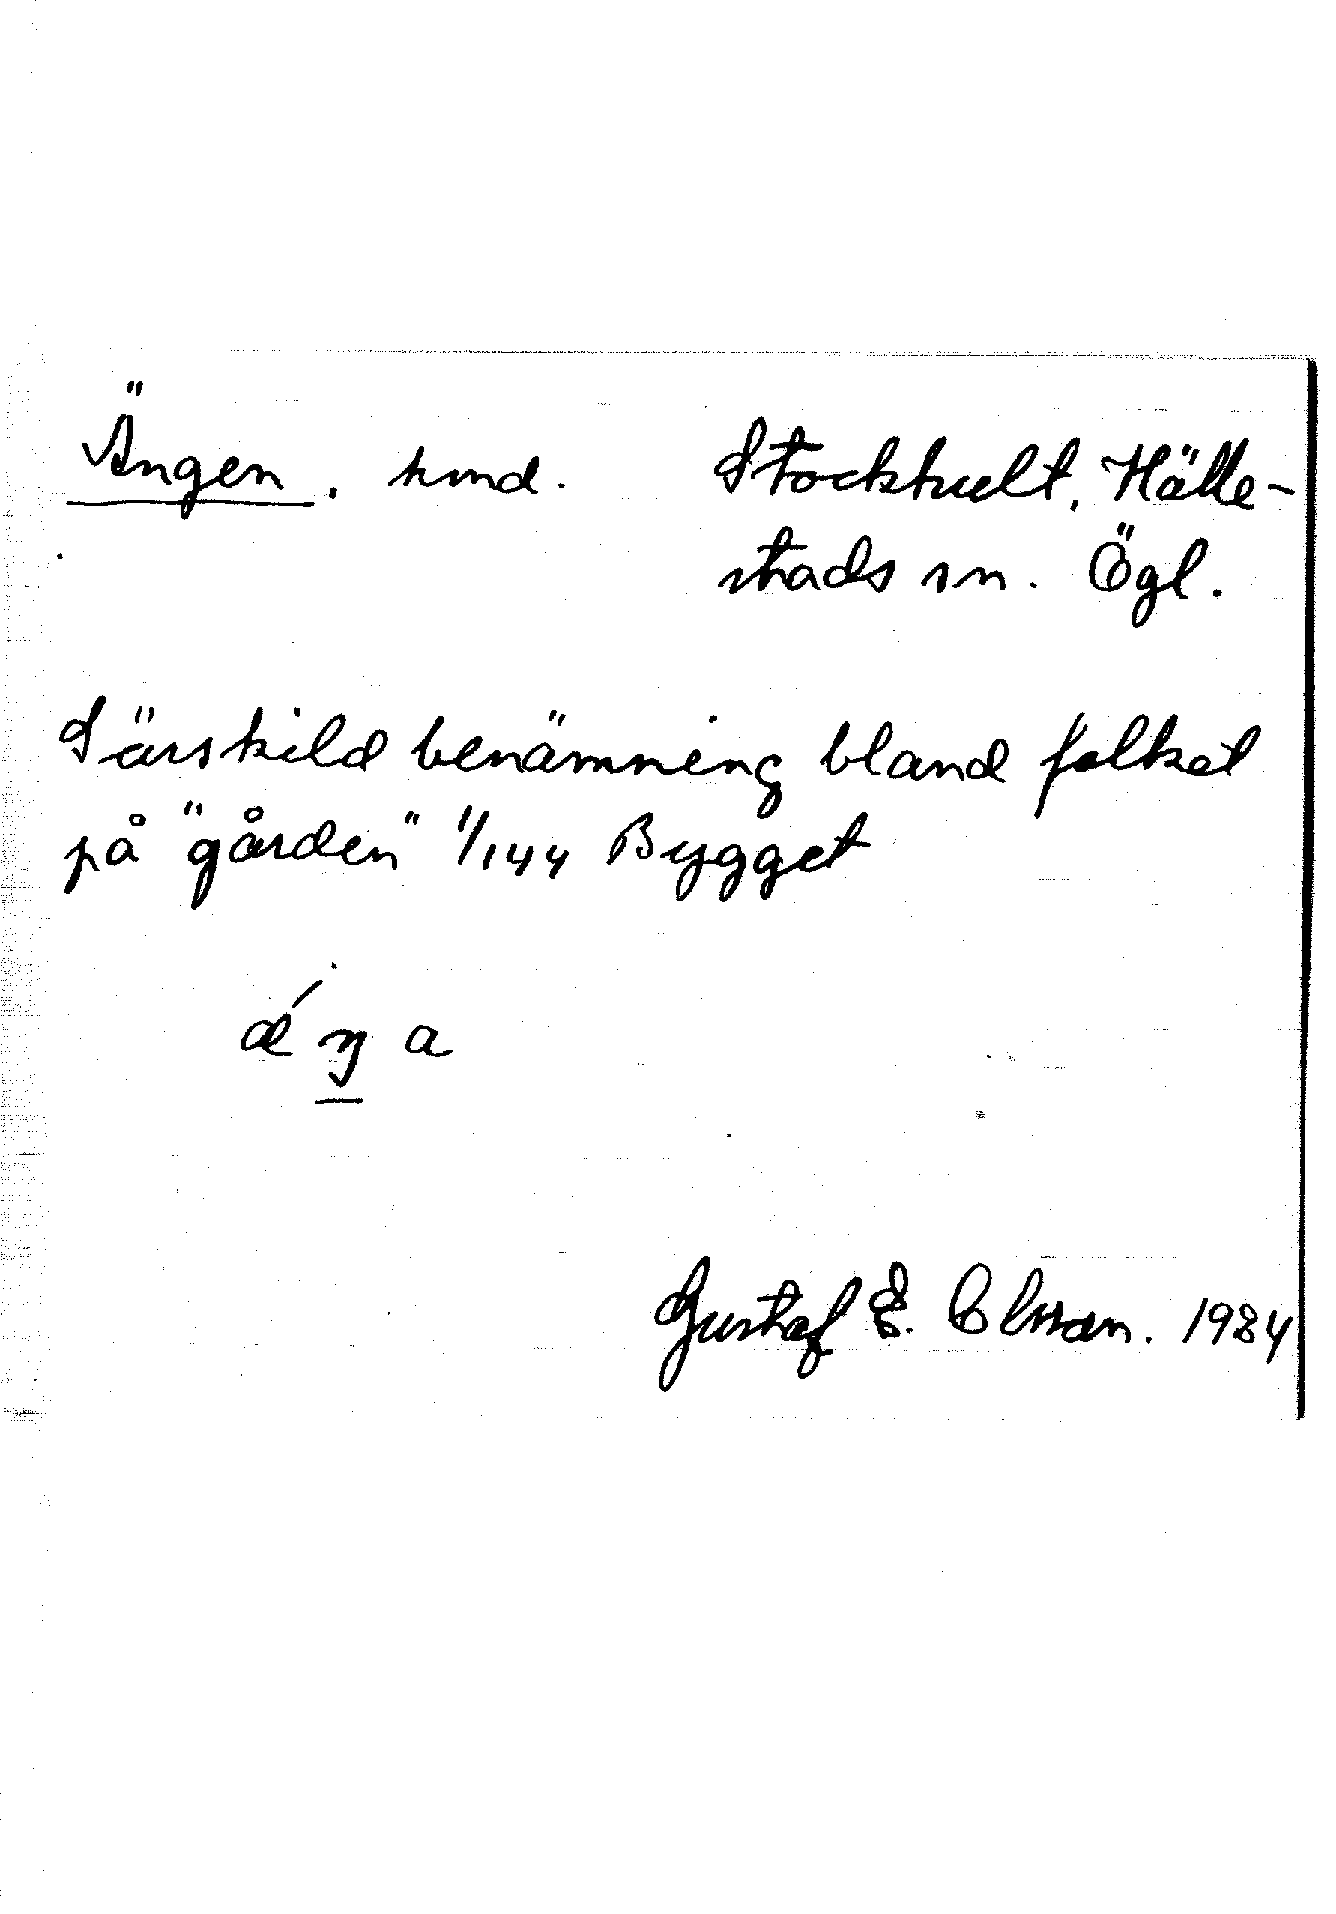 Ängen, hmd. Stockhult, Hälle-
stads sn. Ögl.
Särskild benämning bland folket
på "gården" 1/144 Bygget
ǽ ŋ a
Gustaf E. Olsson. 1984